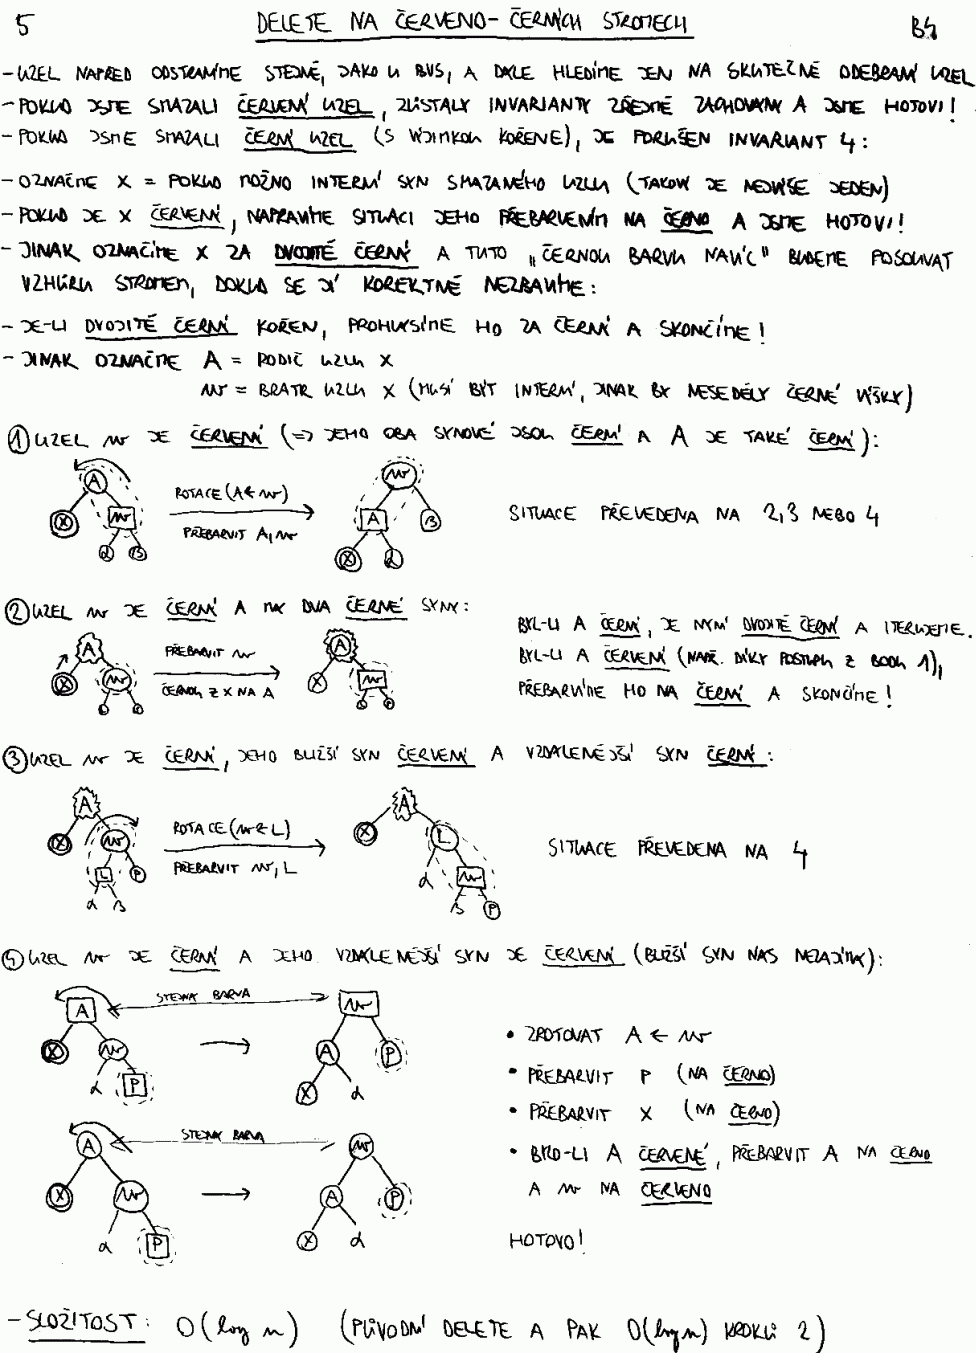 5 DELETE NA ČERVENO-ČERNÝCH STROMECH B4
- UZEL NAPŘED ODSTRANÍME STEJNĚ, JAKO U BVS, A DÁLE HLEDÍME JEN NA SKUTEČNĚ ODEBRANÝ UZEL
- POKUD JSME SMAZALI ČERVENÝ UZEL, ZŮSTALY INVARIANTY ZŘEJMĚ ZACHOVÁNY A JSME HOTOVI!
- POKUD JSME SMAZALI ČERNÝ UZEL (S VÝJIMKOU KOŘENE), JE PORUŠEN INVARIANT 4:
- OZNAČME X = POKUD MOŽNO INTERNÍ SYN SMAZANÉHO UZLU (TAKOVÝ JE NEJVÝŠE JEDEN)
- POKUD JE X ČERVENÝ, NAPRAVÍME SITUACI JEHO PŘEBARVENÍM NA ČERNO A JSME HOTOVI!
- JINAK OZNAČÍME X ZA DVOJITĚ ČERNÝ A TUTO „ČERNOU BARVU NAVÍC" BUDEME POSOUVAT
VZHŮRU STROMEM, DOKUD SE JÍ KOREKTNĚ NEZBAVÍME:
- JE-LI DVOJITĚ ČERNÝ KOŘEN, PROHLÁSÍME HO ZA ČERNÝ A SKONČÍME!
- JINAK OZNAČME A = RODIČ UZLU X
w = BRATR UZLU X (MUSÍ BÝT INTERNÍ, JINAK BY NESEDĚLY ČERNÉ VÝŠKY)
① UZEL w JE ČERVENÝ (=> JEHO OBA SYNOVÉ JSOU ČERNÍ A A JE TAKÉ ČERNÝ):
A w
ROTACE (A ← w)
X w A β
PŘEBARVIT A, w
α β X α
SITUACE PŘEVEDENA NA 2,3 NEBO 4
② UZEL w JE ČERNÝ A MÁ DVA ČERNÉ SYNY:
A PŘEBARVIT w A
X w ČERNOU Z X NA A X w
BYL-LI A ČERNÝ, JE NYNÍ DVOJITĚ ČERNÝ A ITERUJEME.
BYL-LI A ČERVENÝ (NAPŘ. DÍKY POSTUPU Z BODU 1),
PŘEBARVÍME HO NA ČERNÝ A SKONČÍME!
③ UZEL w JE ČERNÝ, JEHO BLIŽŠÍ SYN ČERVENÝ A VZDÁLENĚJŠÍ SYN ČERNÝ:
A A
X w ROTACE (w ← L) X L
L P PŘEBARVIT w, L α w
α β β P
SITUACE PŘEVEDENA NA 4
④ UZEL w JE ČERNÝ A JEHO VZDÁLENĚJŠÍ SYN JE ČERVENÝ (BLIŽŠÍ SYN NÁS NEZAJÍMÁ):
A STEJNÁ BARVA w
X w A P
α P X α
A STEJNÁ BARVA w
X w A P
α P X α
• ZROTOVAT A ← w
• PŘEBARVIT P (NA ČERNO)
• PŘEBARVIT X (NA ČERNO)
• BYLO-LI A ČERVENÉ, PŘEBARVIT A NA ČERNO
A w NA ČERVENO
HOTOVO!
- SLOŽITOST: O(log n) (PŮVODNÍ DELETE A PAK O(log n) KROKŮ 2)